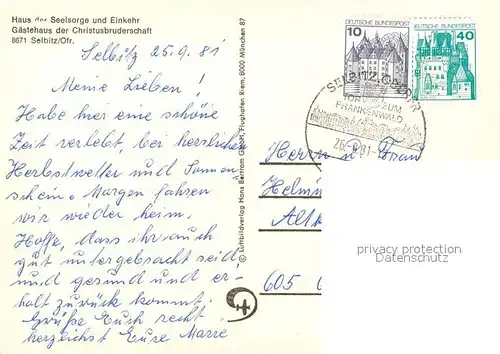 Haus der Seelsorge und Einkehr
Gästehaus der Christusbruderschaft
8671 Selbitz/Ofr.
Selbitz 25.9.81
Meine Lieben!
Habe hier eine schöne
Zeit verlebt, bei herrlichem
Herbstwetter und Sonnen
schein. Morgen fahren
wir wieder heim.
Hoffe, dass ihr auch
gut untergebracht seid
und gesund und er-
holt zurück kommt.
Grüße Euch recht
herzlichst Eure
© Luftbildverlag Hans Bertram GmbH, Flughafen Riem, 8000 München 87
10
DEUTSCHE BUNDESPOST
40
DEUTSCHE BUNDESPOST
SELBITZ
TOR ZUM
FRANKENWALD
26.9.81
Herrn u. Frau
Helm
Alt
605
privacy protection
Datenschutz